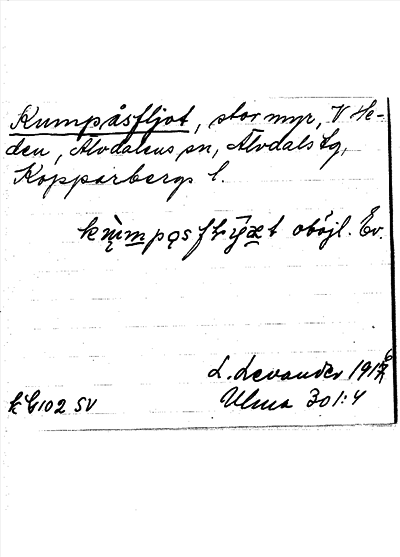 Kumpåsfljot, stor myr, V He-
den, Älvdalens sn, Älvdals tg,
Kopparbergs l.
obojl. Ev.
L. Levander 1916
Ulma 301:4
102 SV